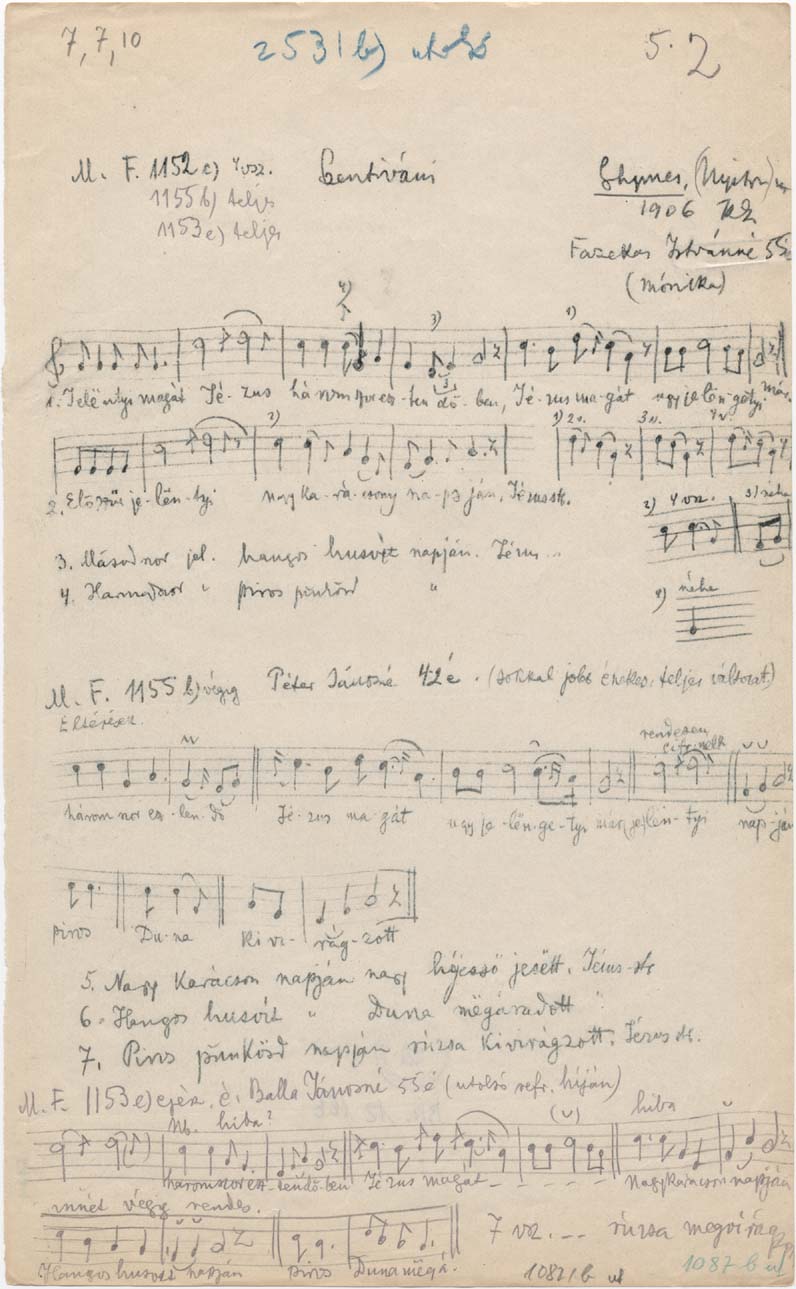 7, 7, 10 2531 b) utolsó 5. 2
M. F. 1152 c) 4 vsz. Szentiváni Ghymes, (Nyitra)
1155 b) teljes 1906 KZ
1153 e) teljes
Fazekas Istvánné 55
(Mónika)
4)
3) 1)
1. Jelëntyi magát Jé-zus három szor esz-ten-dő-ben, Jé-zus ma-gát úgy je-lën-gëtyi már
2) 1) 2v. 3v. 4v.
2. Elöszűr je-lën-tyi nagy ka-rá-csony nap-ján, Jézus stb.
2) 4 vsz. 3) néha
3. Másodszor jel. hangos husvét napján. Jézus...
4. Harmadszor " piros pünkösd "
4) néha
M. F. 1155 b) végig Péter Jánosné 42 é. (sokkal jobb énekes, teljes változat)
Eltérések.
rendesen
cifr. nélk
három szor esz-ten-dő Jé-zus ma-gát úgy je-lën-ge-tyi már (je)lën-tyi nap-ján
piros Du-na ki vi-rág-zott
5. Nagy Karácson napján nagy hójesső jesëtt, Jézus stb
6. Hangos husvít " Duna mëgáradott "
7. Piros pünkösd napján rúzsa kivirágzott, Jézus stb.
M. F. 1153 e) egész é. Balla Jánosné 55 é (utolsó refr. híján)
Nb. hiba? (u) hiba
háromszor esz-tendő-ben Jézus magát - - - - - Nagykarácson napján
innét végig rendes.
7 vsz. ... rúzsa megvirág
Hangos husvét napján piros Duna mëgá.
1087/b ut 1087 b ut